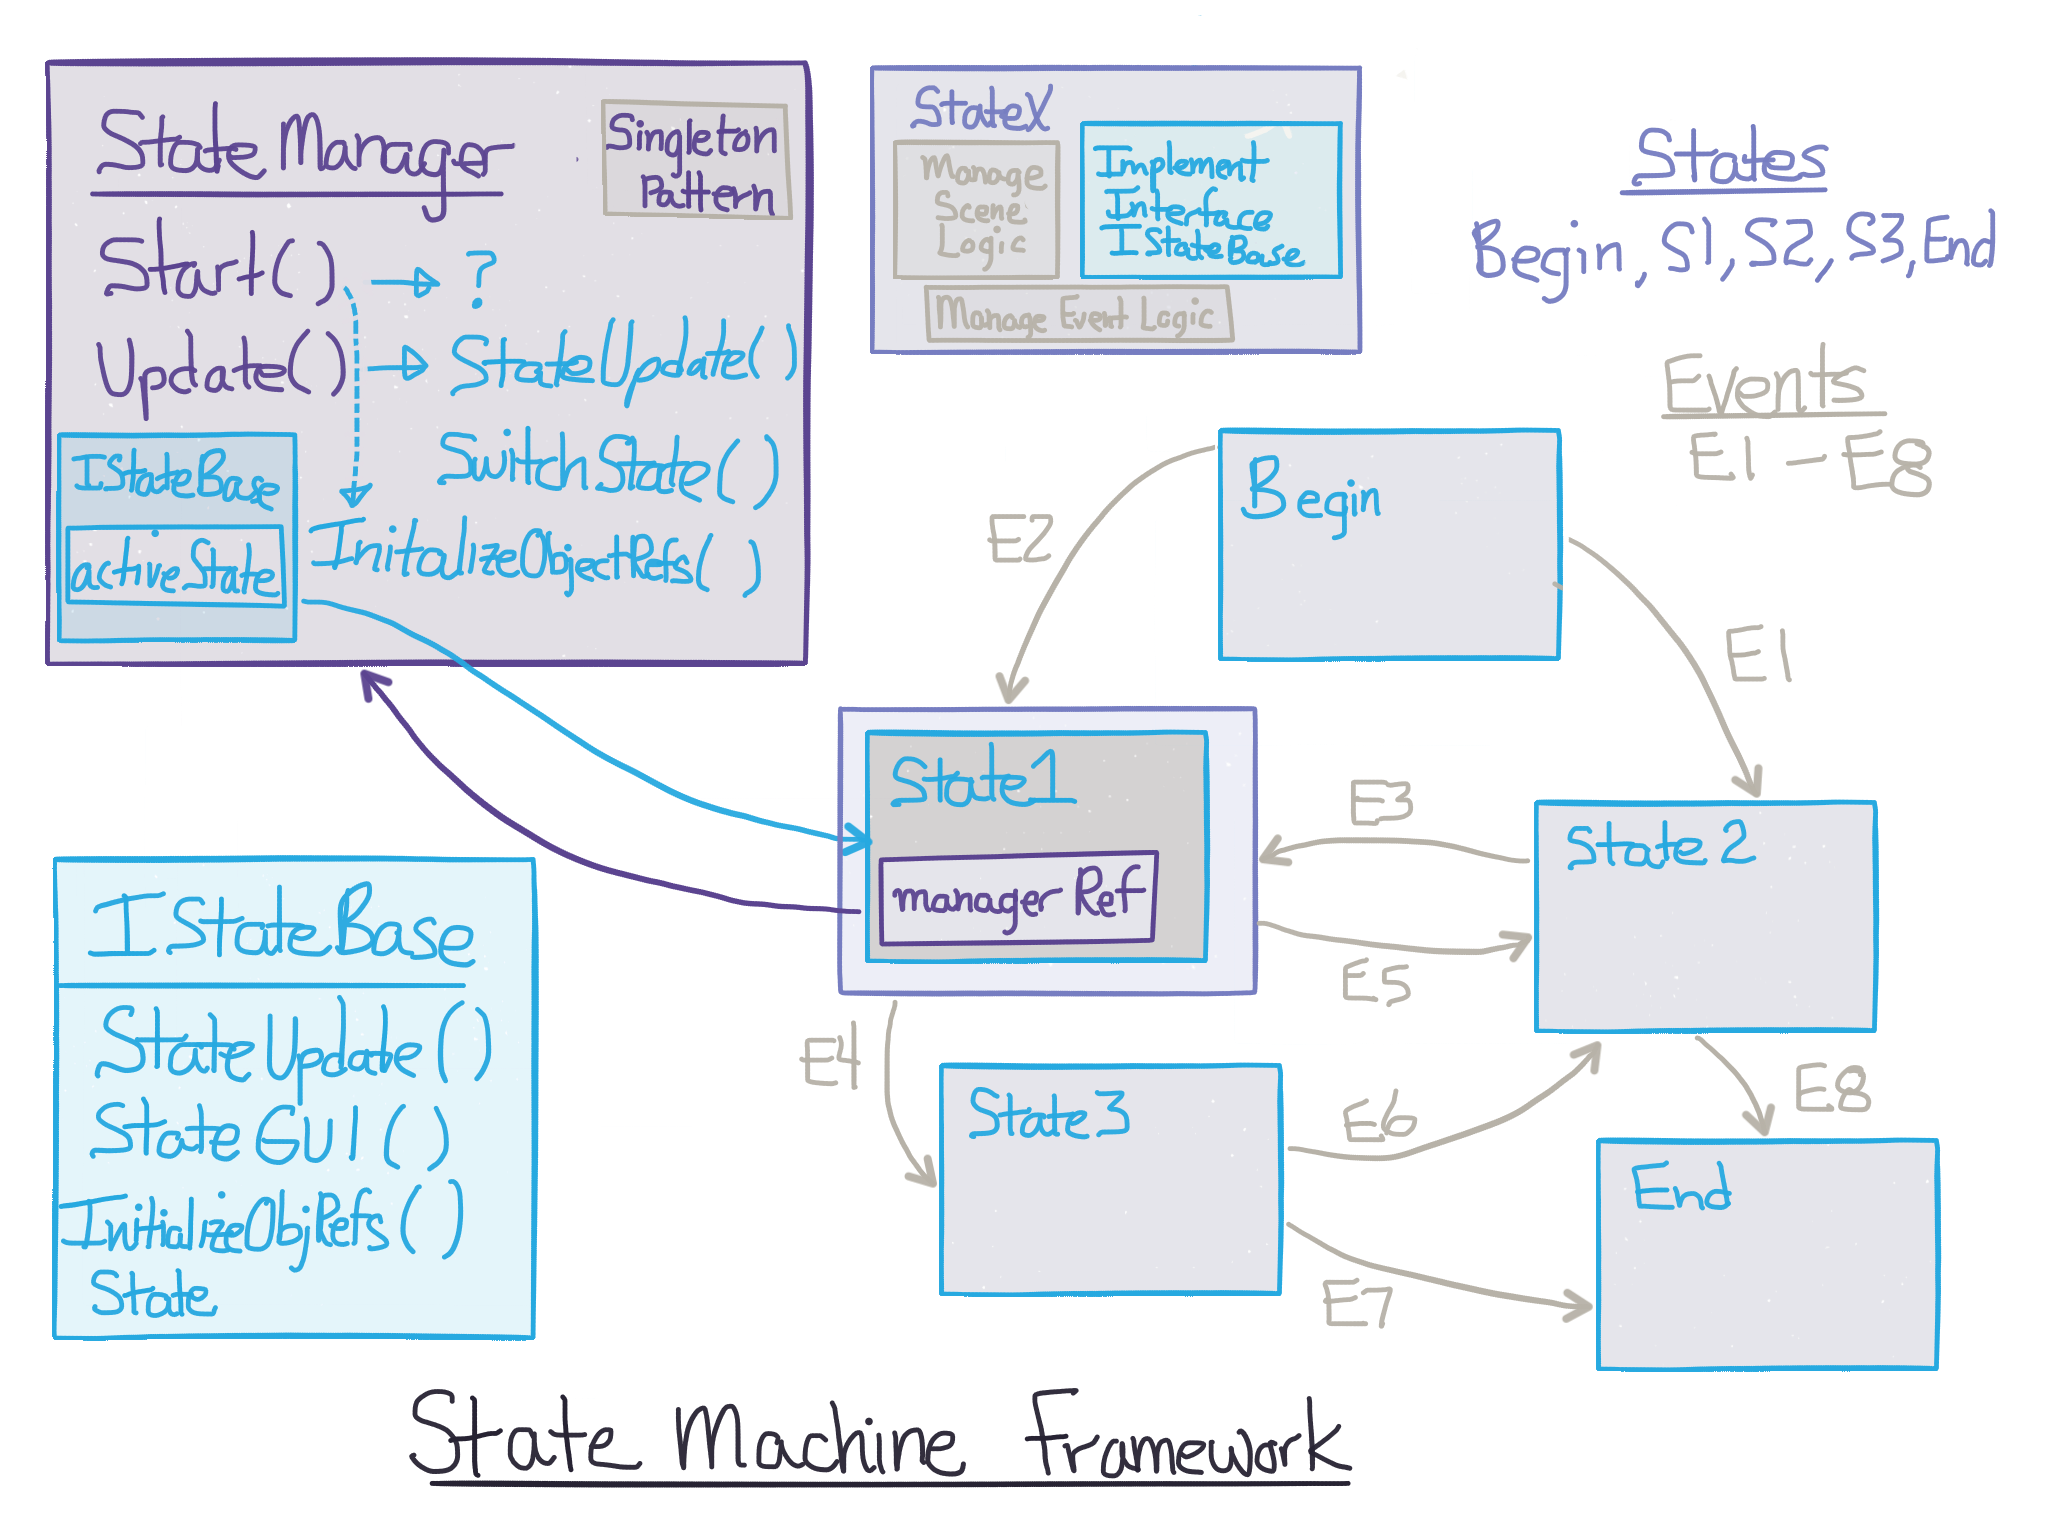 StateManager
Singleton
Pattern
Start() ?
Update() StateUpdate()
SwitchState()
InitalizeObjectRefs()
IStateBase
activeState
StateX
Manage
Scene
Logic
Implement
Interface
IStateBase
Manage Event Logic
States
Begin, S1, S2, S3, End
Events
E1 - E8
Begin
E2
E1
State1
managerRef
E3
State2
E5
E4
State3
E6
E8
End
E7
IStateBase
StateUpdate()
StateGUI()
InitializeObjRefs()
State
State Machine Framework